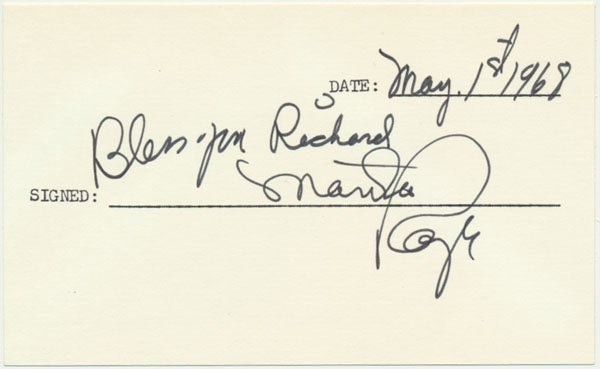 DATE: May. 1st 1968
Bless you Richard
SIGNED: Martha
Raye